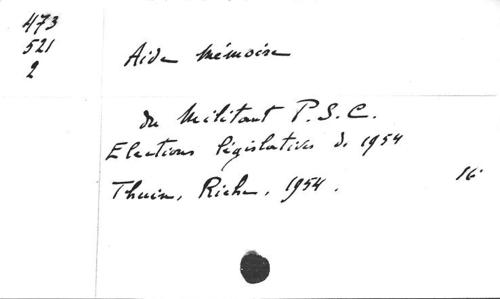 473
521
2
Aide mémoire
du Militant P.S.C.
Elections législatives de 1954
Thuin, Riche, 1954.
16